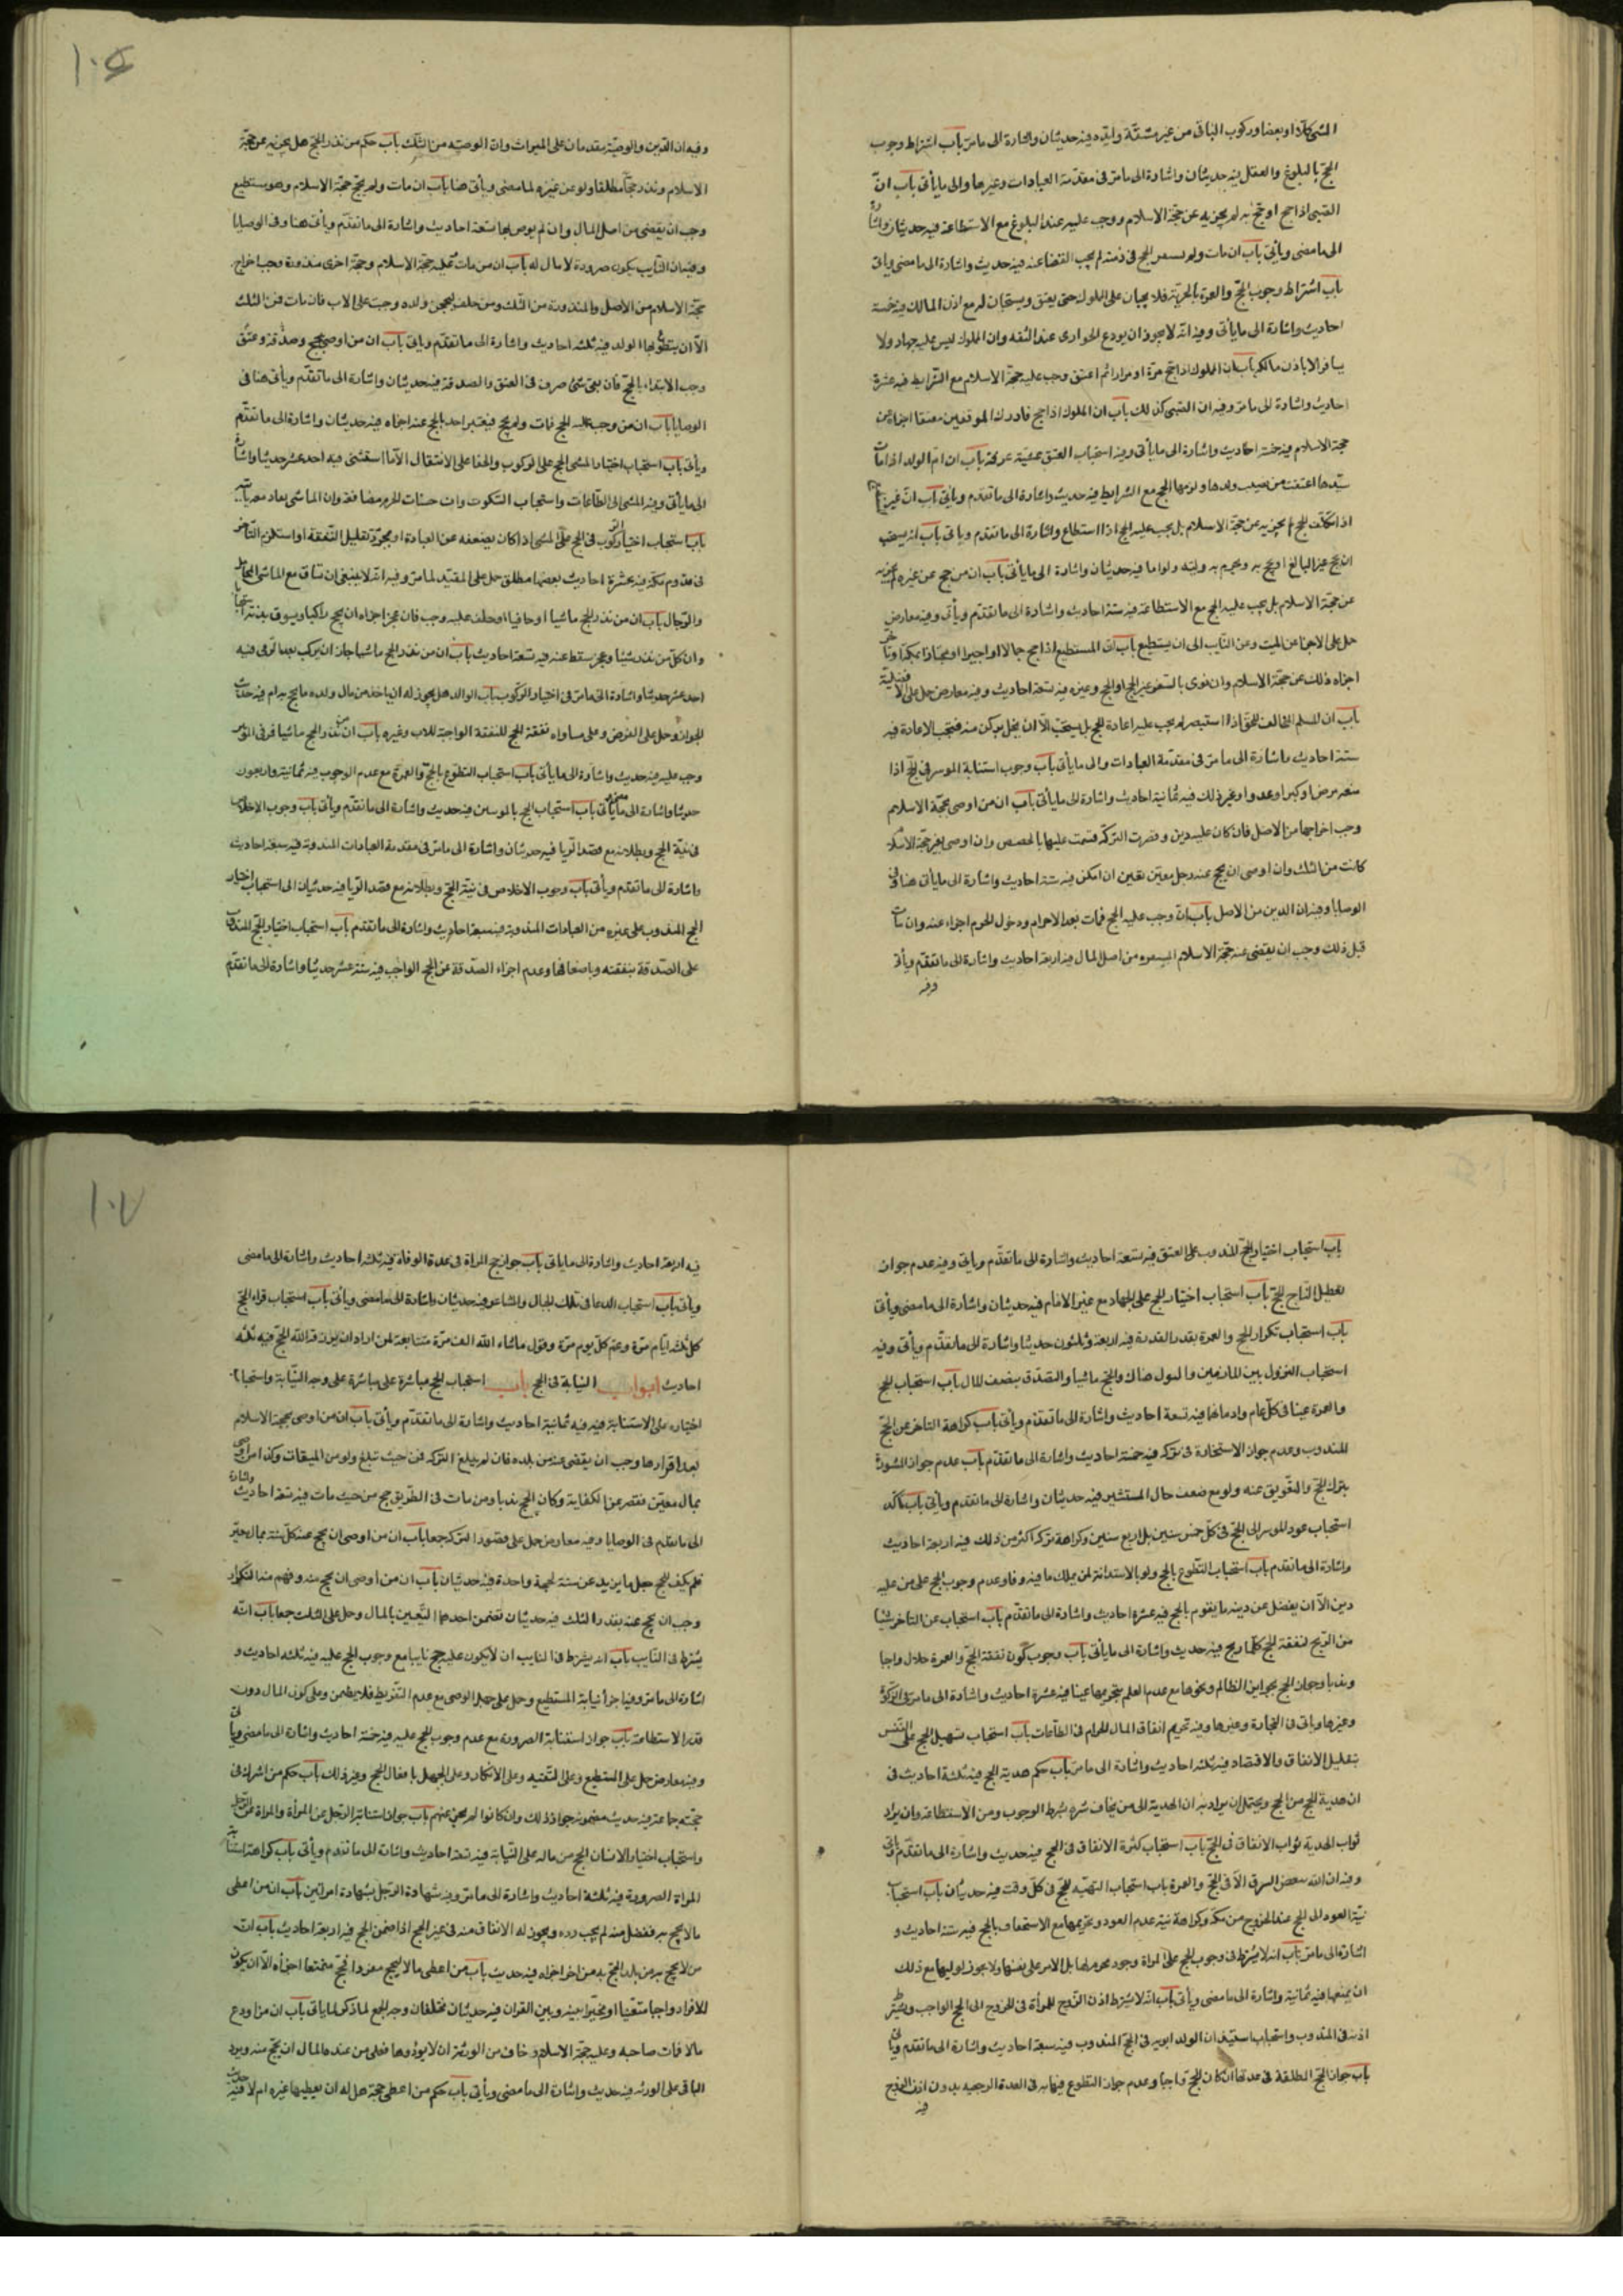 المشى كلا او بعضا وركوب الباقى من غير مشقة ولبّده فيه حديثان واشارة الى ما مرّ باب اشتراط وجوب
الحجّ بالبلوغ والعقل فيه حديثان واشارة الى ما مرّ فى مقدّمة العبادات وغيرها والى ما يأتى باب انّ
الصّبى اذا حج او حجّ به لم يجزيه عن حجّة الاسلام ووجب عليه عند البلوغ مع الاستطاعة فيه حديثان واشارة
الى ما مضى ويأتى باب ان مات ولم يستقر الحج فى ذمته لم يجب القضاء عنه فيه حديث واشارة الى ما مضى وياتى
باب اشتراط وجوب الحجّ والعمرة بالحريّة فلا يجبان على المملوك حتى يعتق ويستحبان له مع اذن المالك فيه خمسة
احاديث واشارة الى ما يأتى وفيه انّه لا يجوز ان يودع الجوارى عند الثقه وان المملوك ليس عليه جهاد ولا
يسافر الا باذن مالكه باب ان المملوك اذا حج مرّة او مرارا ثم اعتق وجب عليه حجّة الاسلام مع الشّرايط فيه عشرة
احاديث واشارة الى ما مرّ وفيه ان الصّبى كذلك باب ان المملوك اذا حج فادرك الموقفين معتقا اجزاه عن
حجة الاسلام فيه خمسة احاديث واشارة الى ما يأتى وفيه استحباب العتق عشيّة عرفة باب ان امّ الولد اذا مات
سيّدها اعتقت من نصيب ولدها ولزمها الحج مع الشرايط فيه حديث واشارة الى ما تقدّم ويأتى باب انّ غير
اذا تكلّف الحج لم يجزيه عن حجّة الاسلام بل يجب عليه الحج اذا استطاع واشارة الى ما تقدم وياتى باب انه يستحب
ان يحج غير البالغ او يحج به ويحرم به وليّه ولو اما فيه حديثان واشارة الى ما يأتى باب ان من حج عن غيره لم يجزيه
عن حجّة الاسلام بل يجب عليه الحج مع الاستطاعة فيه ستة احاديث واشارة الى ما تقدّم ويأتى وفيه معارض
حمل على الاجزا عن الميت وعن النّايب الى ان يستطيع باب ان المستطيع اذا حج جمالا او اجيرا او مجتازا بمكة او تاجرا
اجزاه ذلك عن حجّة الاسلام وان نوى بالسفر غير الحج او الحج وغيره فيه تسعة احاديث وفيه معارض حمل على الافضلية
باب ان المسلم المخالف للحق اذا استبصر لم يجب عليه اعادة الحج بل يستحب الّا ان يخل بركن منه فتجب الاعادة فيه
ستة احاديث واشارة الى ما مرّ فى مقدّمة العبادات والى ما يأتى باب وجوب استنابة الموسر فى الحج اذا
منعه مرض او كبر او عدو او غير ذلك فيه ثمانية احاديث واشارة الى ما يأتى باب ان من اوصى بحجّة الاسلام
وجب اخراجها من الاصل فان كان عليه دين وقصرت التركة قسمت عليها بالحصص وان اوصى بغير حجّة الاسلام
كانت من الثلث وان اوصى ان يحج عنه رجل معيّن تعين ان امكن فيه ستة احاديث واشارة الى ما يأتى هنا وفى
الوصايا وفيه ان الدين من الاصل باب انّ من وجب عليه الحج فمات بعد الاحرام ودخول الحرم اجزاء عنه وان مات
قبل ذلك وجب ان يقضى عنه حجّة الاسلام من اصل المال فيه اربعة احاديث واشارة الى ما تقدّم ويأتى
وفيه
١٠٦
وفيه ان الدّين والوصيّة مقدمان على الميراث وان الوصيّه من الثّلث باب حكم من نذر الحجّ هل يجزيه عن حجّة
الاسلام ونذر حجّا مطلقا ولو عن غيره لما مضى ويأتى هنا باب ان مات ولم يحجّ حجّة الاسلام وهو مستطيع
وجب ان يقضى من اصل المال وان لم يوص بها تسعة احاديث واشارة الى ما تقدّم ويأتى هنا وفى الوصايا
وفيه ان النّايب يكون صرورة لا مال له باب ان من مات وعليه حجّة الاسلام وحجّة اخرى منذورة وجب اخراج
حجّة الاسلام من الاصل والمنذورة من الثّلث ومن حلف ليحجن ولده وجبت على الاب فان مات فمن الثلث
الّا ان يتطوّع بها الولد فيه ثلثه احاديث واشارة الى ما تقدّم وياتى باب ان من اوصى بحج وصدقة وعتق
وجب الابتداء بالحجّ فان بقى شئ صرف فى العتق والصدقة فيه حديثان واشارة الى ما تقدّم ويأتى هنا فى
الوصايا باب ان من وجب عليه الحج فمات ولم يحج فتبرع احد بالحج عنه اجزاه فيه حديثان واشارة الى ما تقدّم
ويأتى باب استحباب اختيار المشى للحج على الركوب والحفا على الانتقال الّا ما استثنى فيه احد عشر حديثا واشارة
الى ما يأتى وفيه المشى الى الطّاعات واستحباب السّكوت وان حسنات الحرم مضاعفة وان الماشى
باب استحباب اختيار الركوب فى الحج على المشى اذا كان يضعفه عن العبادة او لمجرّد تقليل النّفقة او استلزم التأخر
فى قدوم مكّة فيه عشرة احاديث بعضها مطلق حمل على المقيّد لما مرّ وفيه انّه لا ينبغى ان تساق مع الماشى المحامل
والرّحال باب ان من نذر الحج ماشيا او حافيا او حلف عليه وجب فان عجز اجزاه ان يحج راكبا ويسوق بدنة
وان كلّ من نذر شيئا وعجز سقط عنه فيه تسعة احاديث باب ان من نذر الحج ماشيا جاز ان يركب بعد الرمى فيه
احد عشر حديثا واشارة الى ما مرّ فى اختيار الركوب باب الوالد هل يجوز له ان ياخذ من مال ولده ما يحج به ام فيه حديث
الجواز وحمل على القرض وعلى مساواة نفقة الحج للنفقة الواجبة للاب وغيره باب ان من نذر الحج ماشيا
وجب عليه فيه حديث واشارة الى ما يأتى باب استحباب التطوّع بالحجّ والعمرة مع عدم الوجوب فيه ثمانية واربعون
حديثا واشارة الى ما مضى ويأتى باب استحباب الحج بالموسرين فيه حديث واشارة الى ما تقدّم ويأتى باب وجوب الاخلاص
فى نيّة الحج وبطلانه مع قصد الرّيا فيه حديثان واشارة الى ما مرّ فى مقدمة العبادات المندوبة فيه سبعة احاديث
واشارة الى ما تقدم ويأتى باب وجوب الاخلاص فى نيّة الحجّ وبطلانه مع قصد الرّيا فيه حديثان الى استحباب اختيار
الحج المندوب على غيره من العبادات المندوبة فيه سبعة احاديث واشارة الى ما تقدّم باب استحباب اختيار الحجّ المندوب
على الصّدقة بنفقته وباضعافها وعدم اجزاء الصّدقة عن الحج الواجب فيه ستة عشر حديثا واشارة الى ما تقدّم
باب استحباب اختيار الحجّ المندوب على العتق فيه تسعة احاديث واشارة الى ما تقدّم وياتى وفيه عدم جواز
تعطيل الحاج للحجّ باب استحباب اختيار الحج على الجهاد مع غير الامام فيه حديثان واشارة الى ما مضى ويأتى
باب استحباب تكرار الحج والعمرة بقدر القدرة فيه اربعة وثلثون حديثا واشارة الى ما تقدّم ويأتى وفيه
استحباب النزول بين المازمين والبول هناك والحجّ ماشيا والتصدّق بنصف المال باب استحباب الحج
والعمرة عينا فى كلّ عام وادمانها فيه تسعة احاديث واشارة الى ما تقدّم ويأتى باب كراهة التاخر عن الحجّ
المندوب وعدم جواز الاستخارة فى تركه فيه خمسة احاديث واشارة الى ما تقدّم باب عدم جواز المشورة
بترك الحجّ والتعويق عنه ولو مع ضعف حال المستشير فيه حديثان واشارة الى ما تقدم ويأتى باب تأكّد
استحباب عود الموسر الى الحجّ فى كلّ خمس سنين بل اربع سنين وكراهة تركه اكثر من ذلك فيه اربعة احاديث
واشارة الى ما تقدم باب استحباب التطوّع بالحج ولو بالاستدانة لمن يملك ما فيه وفا وعدم وجوب الحج على من عليه
دين الّا ان يفضل عن دينه ما يقوم بالحج فيه عشرة احاديث واشارة الى ما تقدّم باب استحباب عزل التاجر شيئا
من الرّبح لنفقة الحج كلّما ربح فيه حديث واشارة الى ما يأتى باب وجوب كون نفقة الحجّ والعمرة حلالا واجبا
وندبا وجواز الحج بجوايز الظالم ونحوها مع عدم العلم بتحريمها عينا فيه عشرة احاديث واشارة الى ما مرّ فى الزكوة
وغيرها وياتى فى التجارة وغيرها وفيه تحريم انفاق المال الحرام فى الطّاعات باب استحباب تسهيل الحج على النّفس
بتقليل الانفاق والاقتصاد فيه ثلثه احاديث واشارة الى ما مرّ باب حكم هدية الحج فيه ثلثة احاديث فى
ان هدية الحج من الحج ويحتمل ان يراد به ان الهدية الى من يخاف شره شرط الوجوب ومن الاستطاعة وان يراد
ثواب الهدية ثواب الانفاق فى الحجّ باب استحباب كثرة الانفاق فى الحج فيه حديث واشارة الى ما تقدّم وياتى
وفيه ان الله يبغض السرف الّا فى الحجّ والعمرة باب استحباب التهيّه للحجّ فى كلّ وقت فيه حديثان باب استحباب
نيّة العود الى الحج عند الخروج من مكّة وكراهة نيّة عدم العود وتحريمها مع الاستخفاف بالحج فيه ستة احاديث و
اشارة الى ما مرّ باب انه لا يشترط فى وجوب الحج على المراة وجود محرم لها بل الامن على نفسها ولا يجوز لوليها مع ذلك
ان يمنعها فيه ثمانية واشارة الى ما مضى ويأتى باب انّه لا يشترط اذن الزوج للمرأة فى الخروج الى الحج الواجب ويشترط
اذنه فى المندوب واستحباب استيذان الولد ابويه فى الحجّ المندوب فيه سبعة احاديث واشارة الى ما تقدم وياتى
باب جواز حجّ المطلقة فى عدتها ان كان الحجّ واجبا وعدم جواز التطوع فيها به فى العدة الرجعيه بدون اذن الزوج
فيه
١٠٧
فيه اربعة احاديث واشارة الى ما ياتى باب جواز حج المراة فى عدة الوفاة فيه ثلثه احاديث واشارة الى ما مضى
ويأتى باب استحباب الدعا فى تلك الجبال والمشاعر فيه حديثان واشارة الى ما مضى ويأتى باب استحباب قراءة الحجّ
كل ثلثه ايّام مرّة وعمّ كلّ يوم مرّة وقول ما شاء الله الف مرّة متتابعة لمن اراد ان يرزقه الله الحجّ فيه ثلثه
احاديث ابواب النيابة فى الحج باب استحباب الحج مباشرة على مباشرة على وجه النّيابة واستحباب
اختياره على الاستنابة فيه فيه ثمانية احاديث واشارة الى ما تقدّم ويأتى باب ان من اوصى بحجة الاسلام
بعد اقرارها وجب ان يقضى عنه من بلده فان لم يبلغ التركة فمن حيث تبلغ ولو من الميقات وكذا من اوصى
بمال معيّن فقصر عن الكفاية وكان الحج ندبا ومن مات فى الطّريق حج من حيث مات فيه تسعة احاديث واشارة
الى ما تقدم فى الوصايا وفيه معارض حمل على قصور التركة جمعا باب ان من اوصى ان يحج عنه كلّ سنة بمال معيّن
فلم يكف للحج جعل ما يزيد عن سنة لحجة واحدة فيه حديثان باب ان من اوصى ان يحج عنه وفهم منه التكرار
وجب ان يحج عنه بقدر الثلث فيه حديثان تضمن احدهما التّعيين بالمال وحمل على الثلث جمعا باب انّه
يشترط فى النّايب باب انه يشترط فى النايب ان لا يكون عليه حج نايبا مع وجوب الحج عليه فيه ثلثه احاديث و
اشارة الى ما مرّ وفيها اجزأ نيابة المستطيع وحمل على جهل الوصى مع عدم التّفريط فلا يضمن وعلى كون المال دون
قدر الاستطاعة باب جواز استنابة الصرورة مع عدم وجوب الحج عليه فيه خمسة احاديث واشارة الى ما مضى وياتى
وفيه معارض حمل على المستطيع وعلى التّقيه وعلى الانكار وعلى الجهل بافعال الحج وغير ذلك باب حكم من اشرك فى
حجّته جماعة فيه حديث مضمونه جواز ذلك وان كانوا لم يحجّ عنهم باب جواز استنابة الرّجل عن المرأة والمراة عن الرّجل
واستحباب اختيار الانسان الحج من ماله على النّيابة فيه تسعة احاديث واشارة الى ما تقدم ويأتى باب كراهة استنابة
المراة الصرورة فيه ثلثة احاديث واشارة الى ما مرّ وفيه شهادة الرّجل بشهادة امراتين باب ان من اعطى
مالا يحج به ففضل منه لم يجب رده ويجوز له الانفاق منه فى غير الحج اذا ضمن الحج فيه اربعة احاديث باب ان
من اعطى مالا ليحج مفردا فحج متمتعا اجزأه الّا ان يكون
الافراد واجبا متعيّنا او مخيّرا بينه وبين القران فيه حديثان مختلفان وجه الجمع لما ذكر لما ياتى باب ان من اودع
مالا فات صاحبه وعليه حجّة الاسلام وخاف من الورثة ان لا يودّوها فعلى من عنده المال ان يحجّ منه ويرد
الباقى على الورثه فيه حديث واشارة الى ما مضى ويأتى باب حكم من اعطى حجّة هل له ان يعطيها غيره ام لا فيه حديث